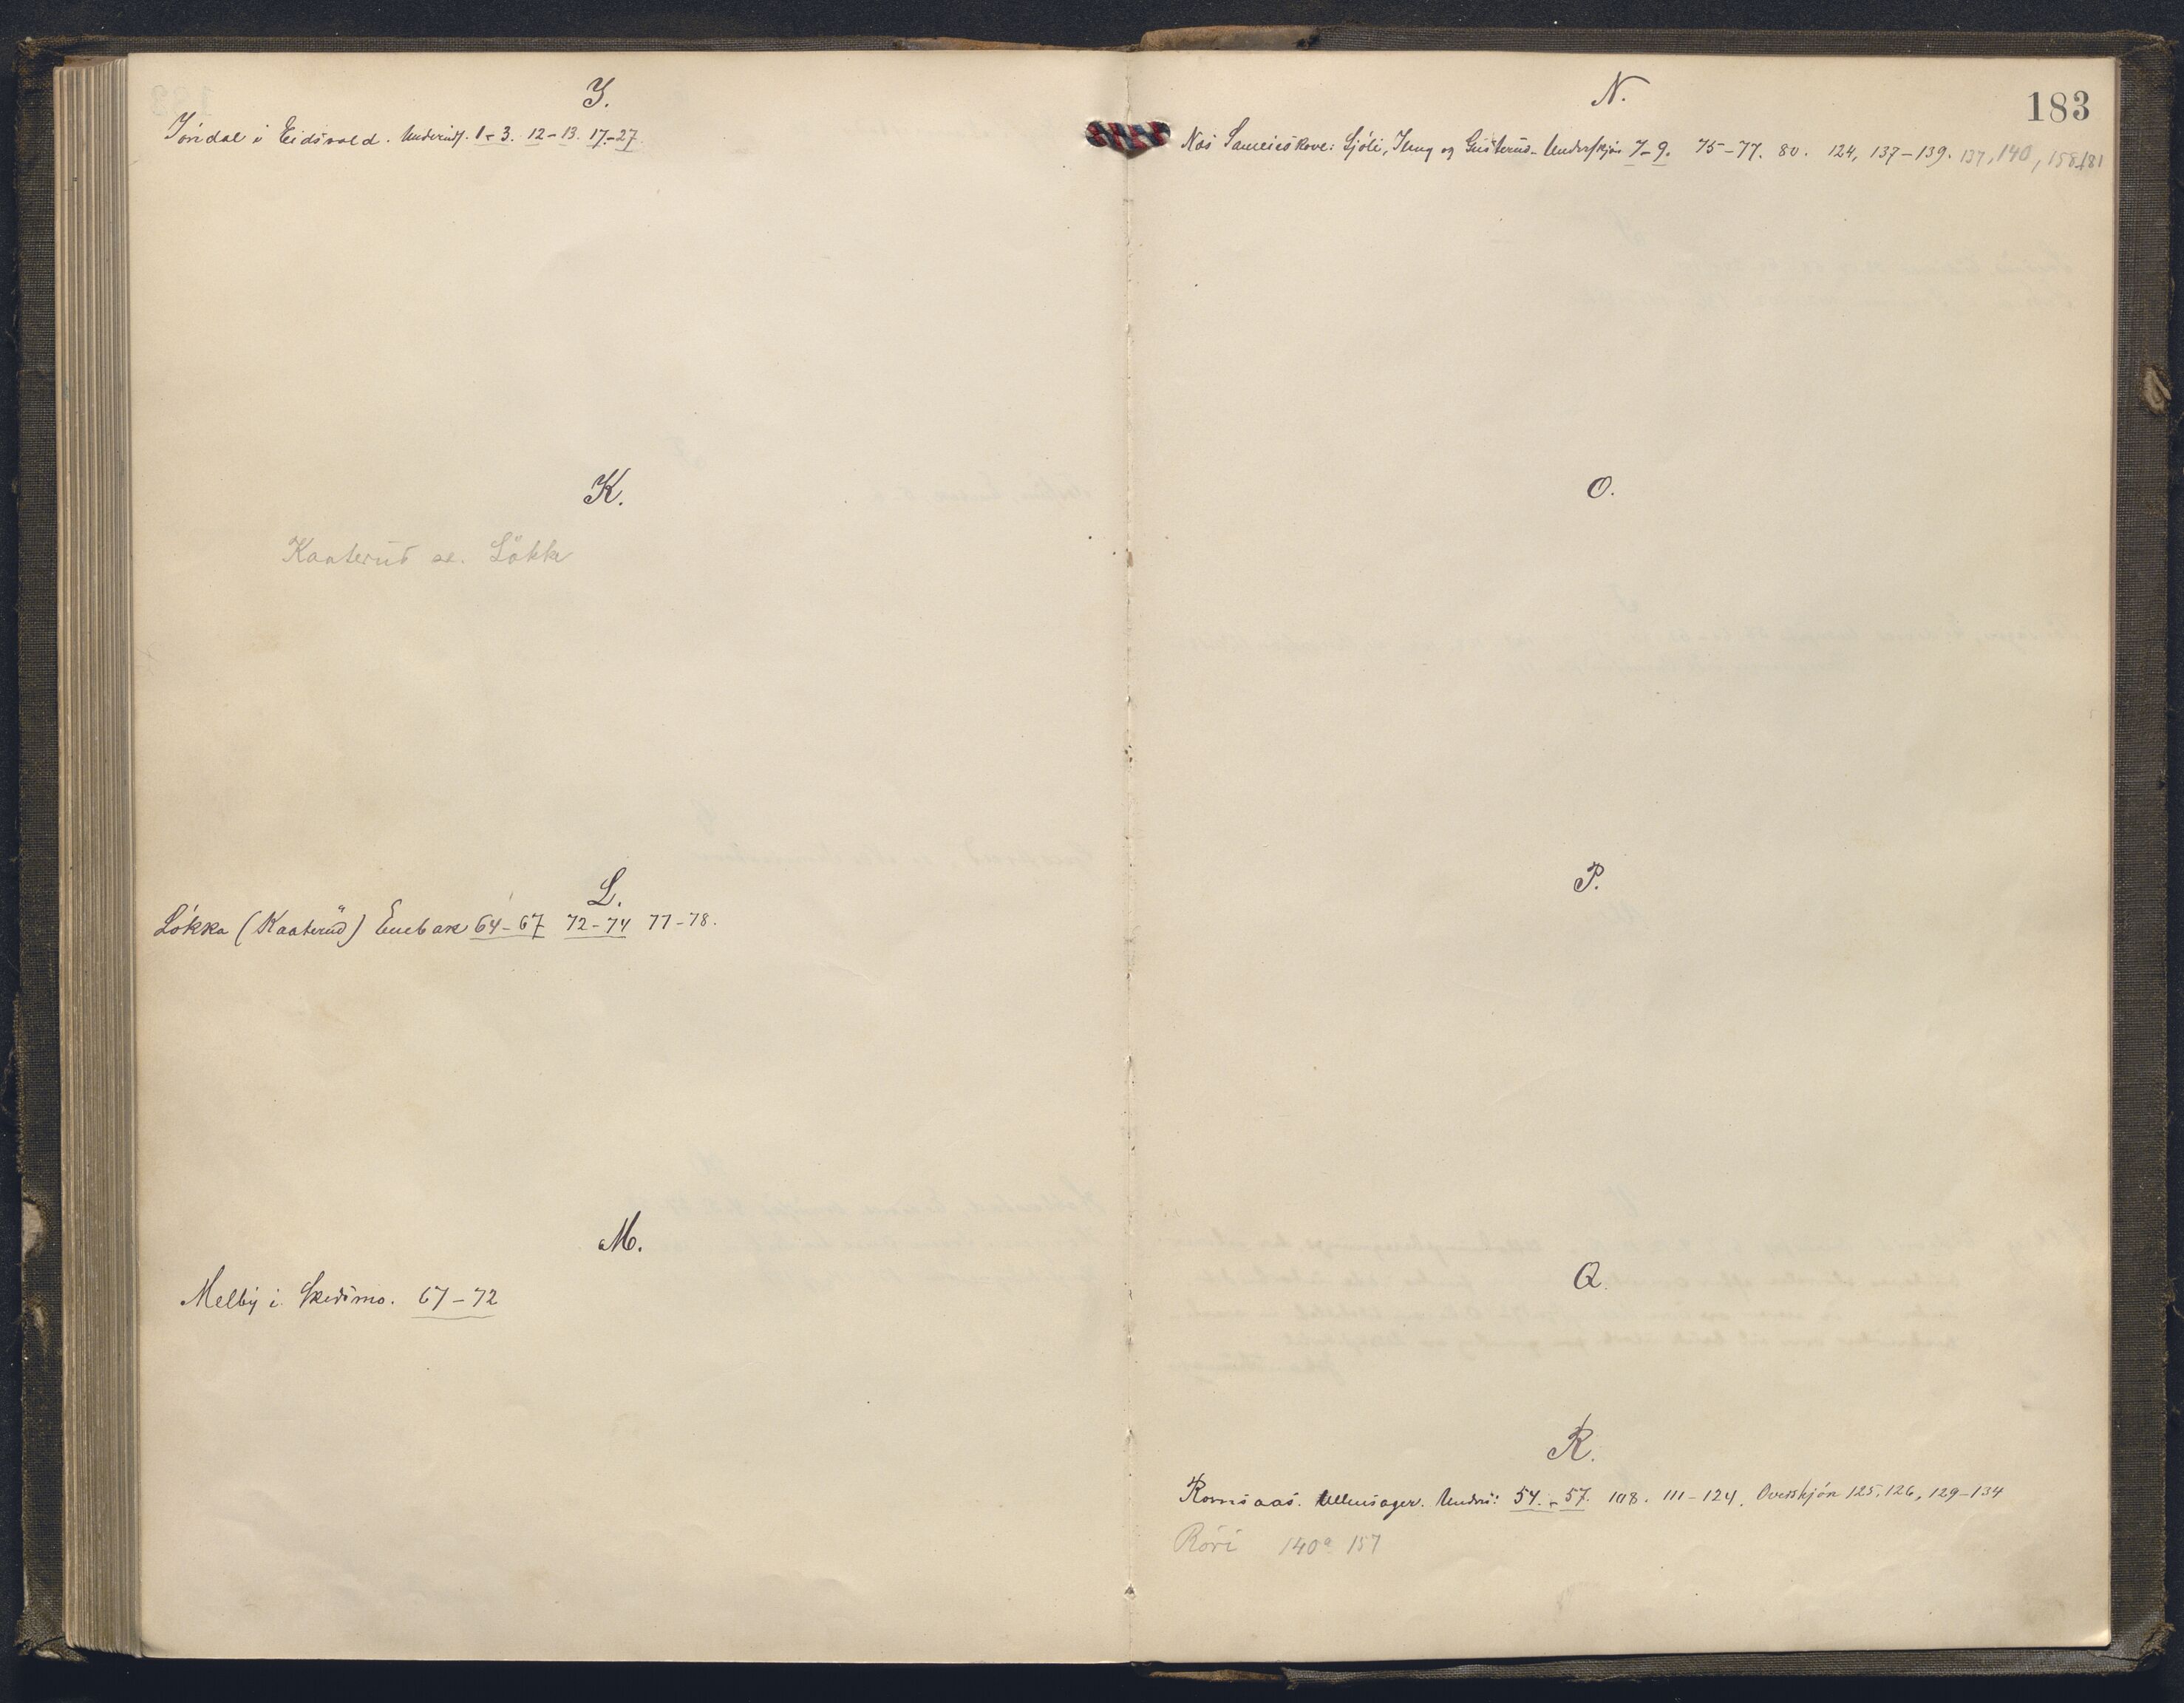 J.
Jöndal i Eidsvold. Undersk. 1-3. 12-13. 17-27
K.
Kaaterud se. Lökka
L.
Lökka (Kaaterud) Enebak 64-67 72-74 77-78.
M.
Melby i Skedsmo. 67-72
183
N.
Næs Sameieskove: Sjöli, og Gusterud - Underskjön 7-9. 75-77. 80. 124, 137-139. 137, 140, 158-181
O.
P.
Q.
R.
Romsaas. Ullensager. Unders: 54.-57. 108. 111-124. Overskjön 125, 126, 129-134
Röri 140a 157